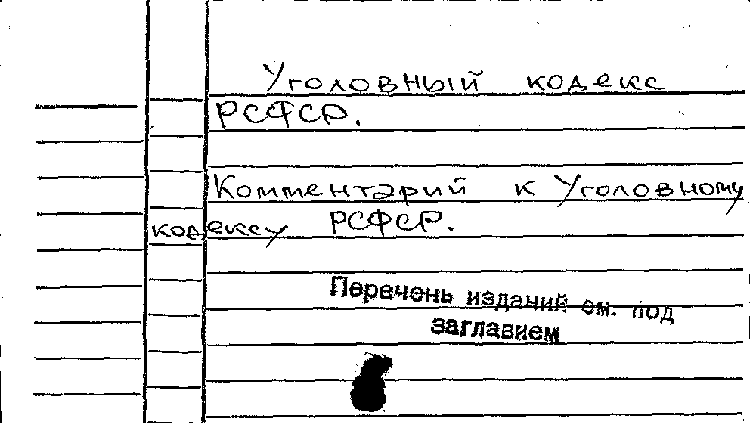 Уголовный кодекс
РСФСР.
Комментарий к Уголовному
кодексу РСФСР.
Перечень изданий см. под
заглавием